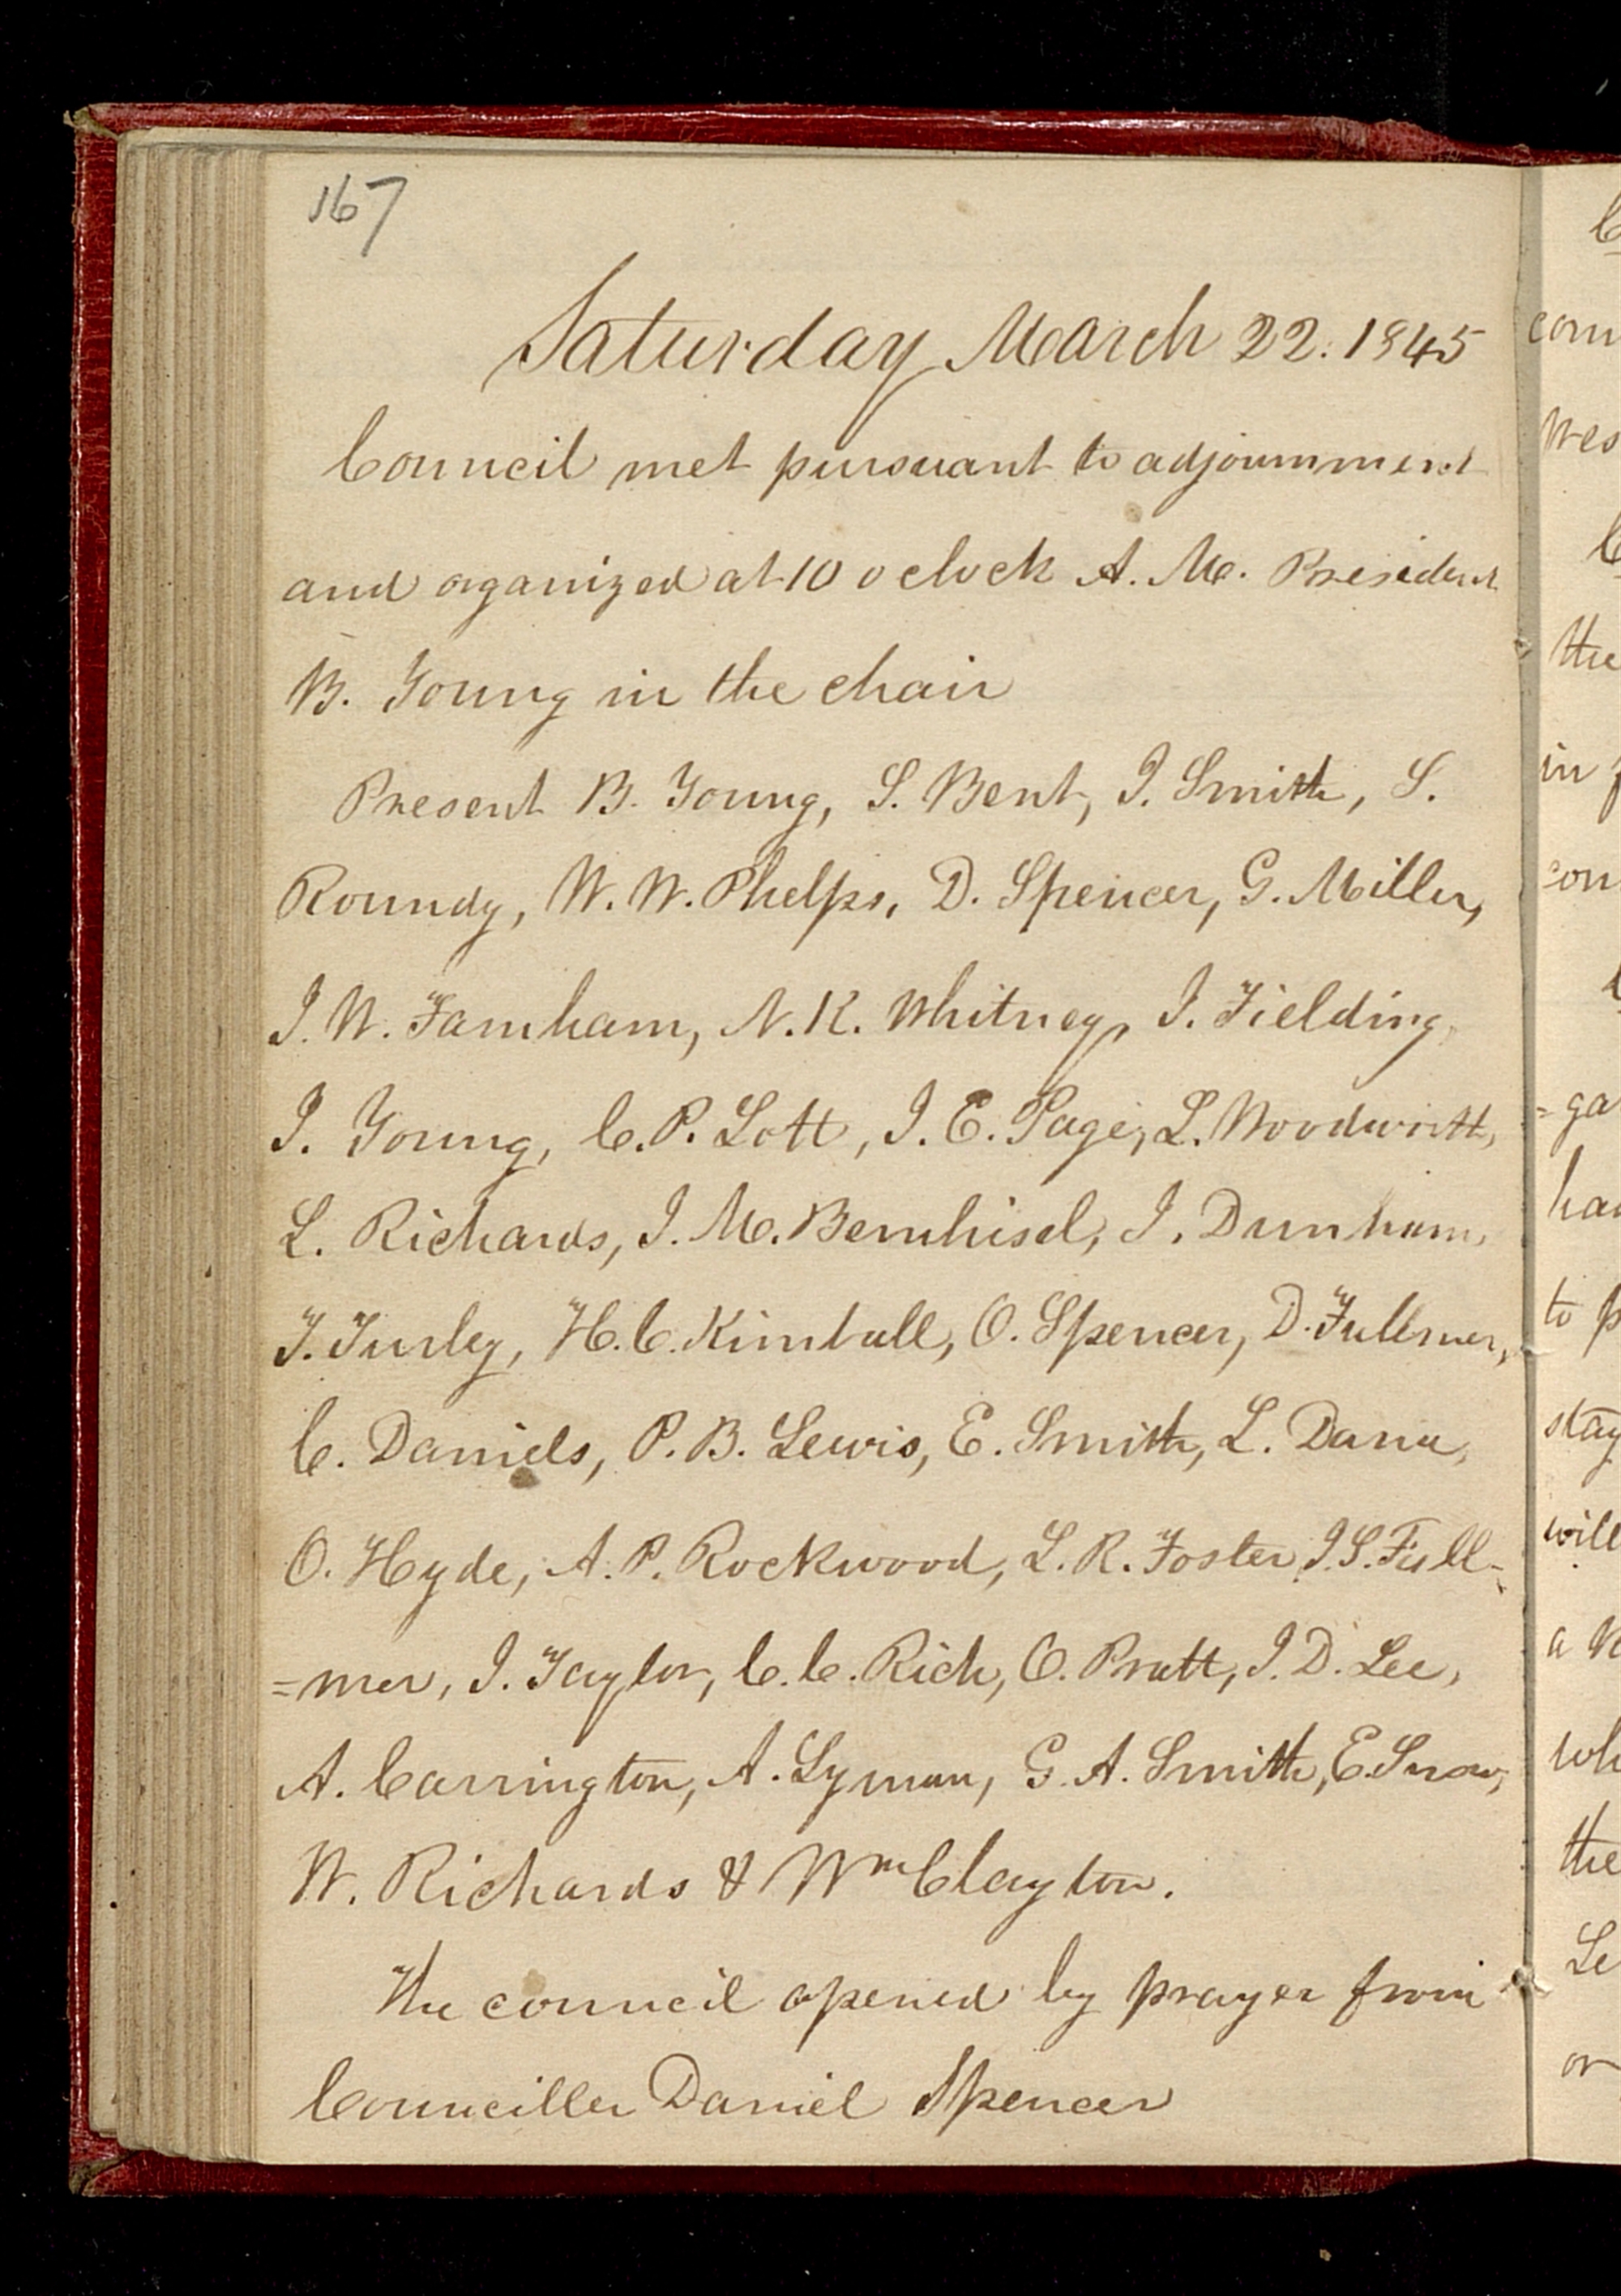 167
Saturday March 22. 1845
Council met pursuant to adjournment
and organized at 10 o clock A. M. President
B. Young in the chair
Present B. Young, S. Bent, J. Smith, S.
Roundy, W. W. Phelps, D. Spencer, G. Miller,
J. W. Farnham, N. K. Whitney, J. Fielding,
J. Young, C. P. Lott, J. E. Page, L. Woodworth,
L. Richards, J. M. Bernhisel, J. Dunham,
T. Turley, H. C. Kimball, O. Spencer, D. Fullmer,
C. Daniels, P. B. Lewis, E. Smith, L. Dana,
O. Hyde, A. P. Rockwood, L. R. Foster, J. S. Full-
=mer, J. Taylor, C. C. Rich, O. Pratt, J. D. Lee,
A. Carrington, A. Lyman, G. A. Smith, E. Snow,
W. Richards & Wm Clayton.
The council opened by prayer from
Counciller Daniel Spencer